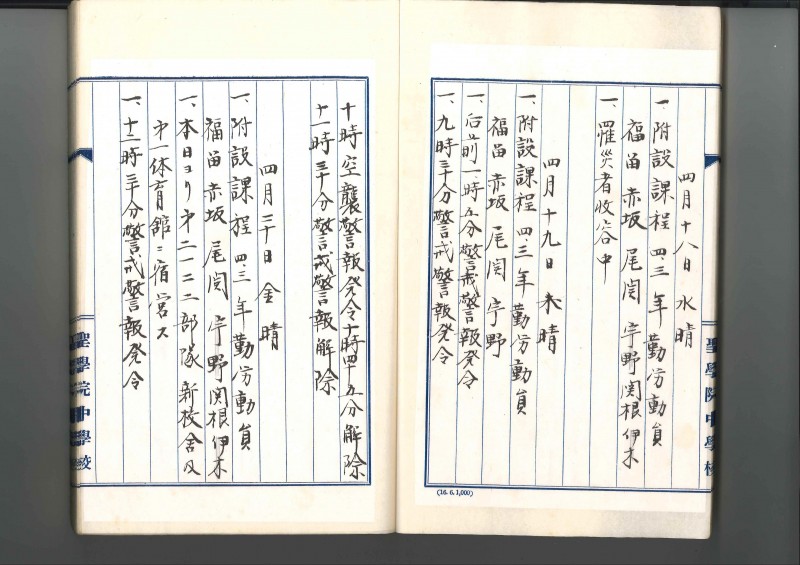 四月十八日 水 晴
一、附設課程 四、三年 勤労動員
福苗 赤坂 尾関 宇野 関根 伊木
一、罹災者收容中
四月十九日 木 晴
一、附設課程 四、三年勤労動員
福苗 赤坂 尾関 宇野
一、后前一時五分警戒警報発令
一、九時三十分警戒警報発令
聖學院中學校
(16. 6. 1,000)
十時空襲警報発令十時四十五分解除
十一時三十分警戒警報解除
四月二十日 金 晴
一、附設課程 四、三年勤労動員
福苗 赤坂 尾関 宇野 関根 伊木
一、本日ヨリ 第二一二二部隊 新校舎及
第一体育館ニ宿営ス
一、十二時三十分警戒警報発令
聖學院中學校